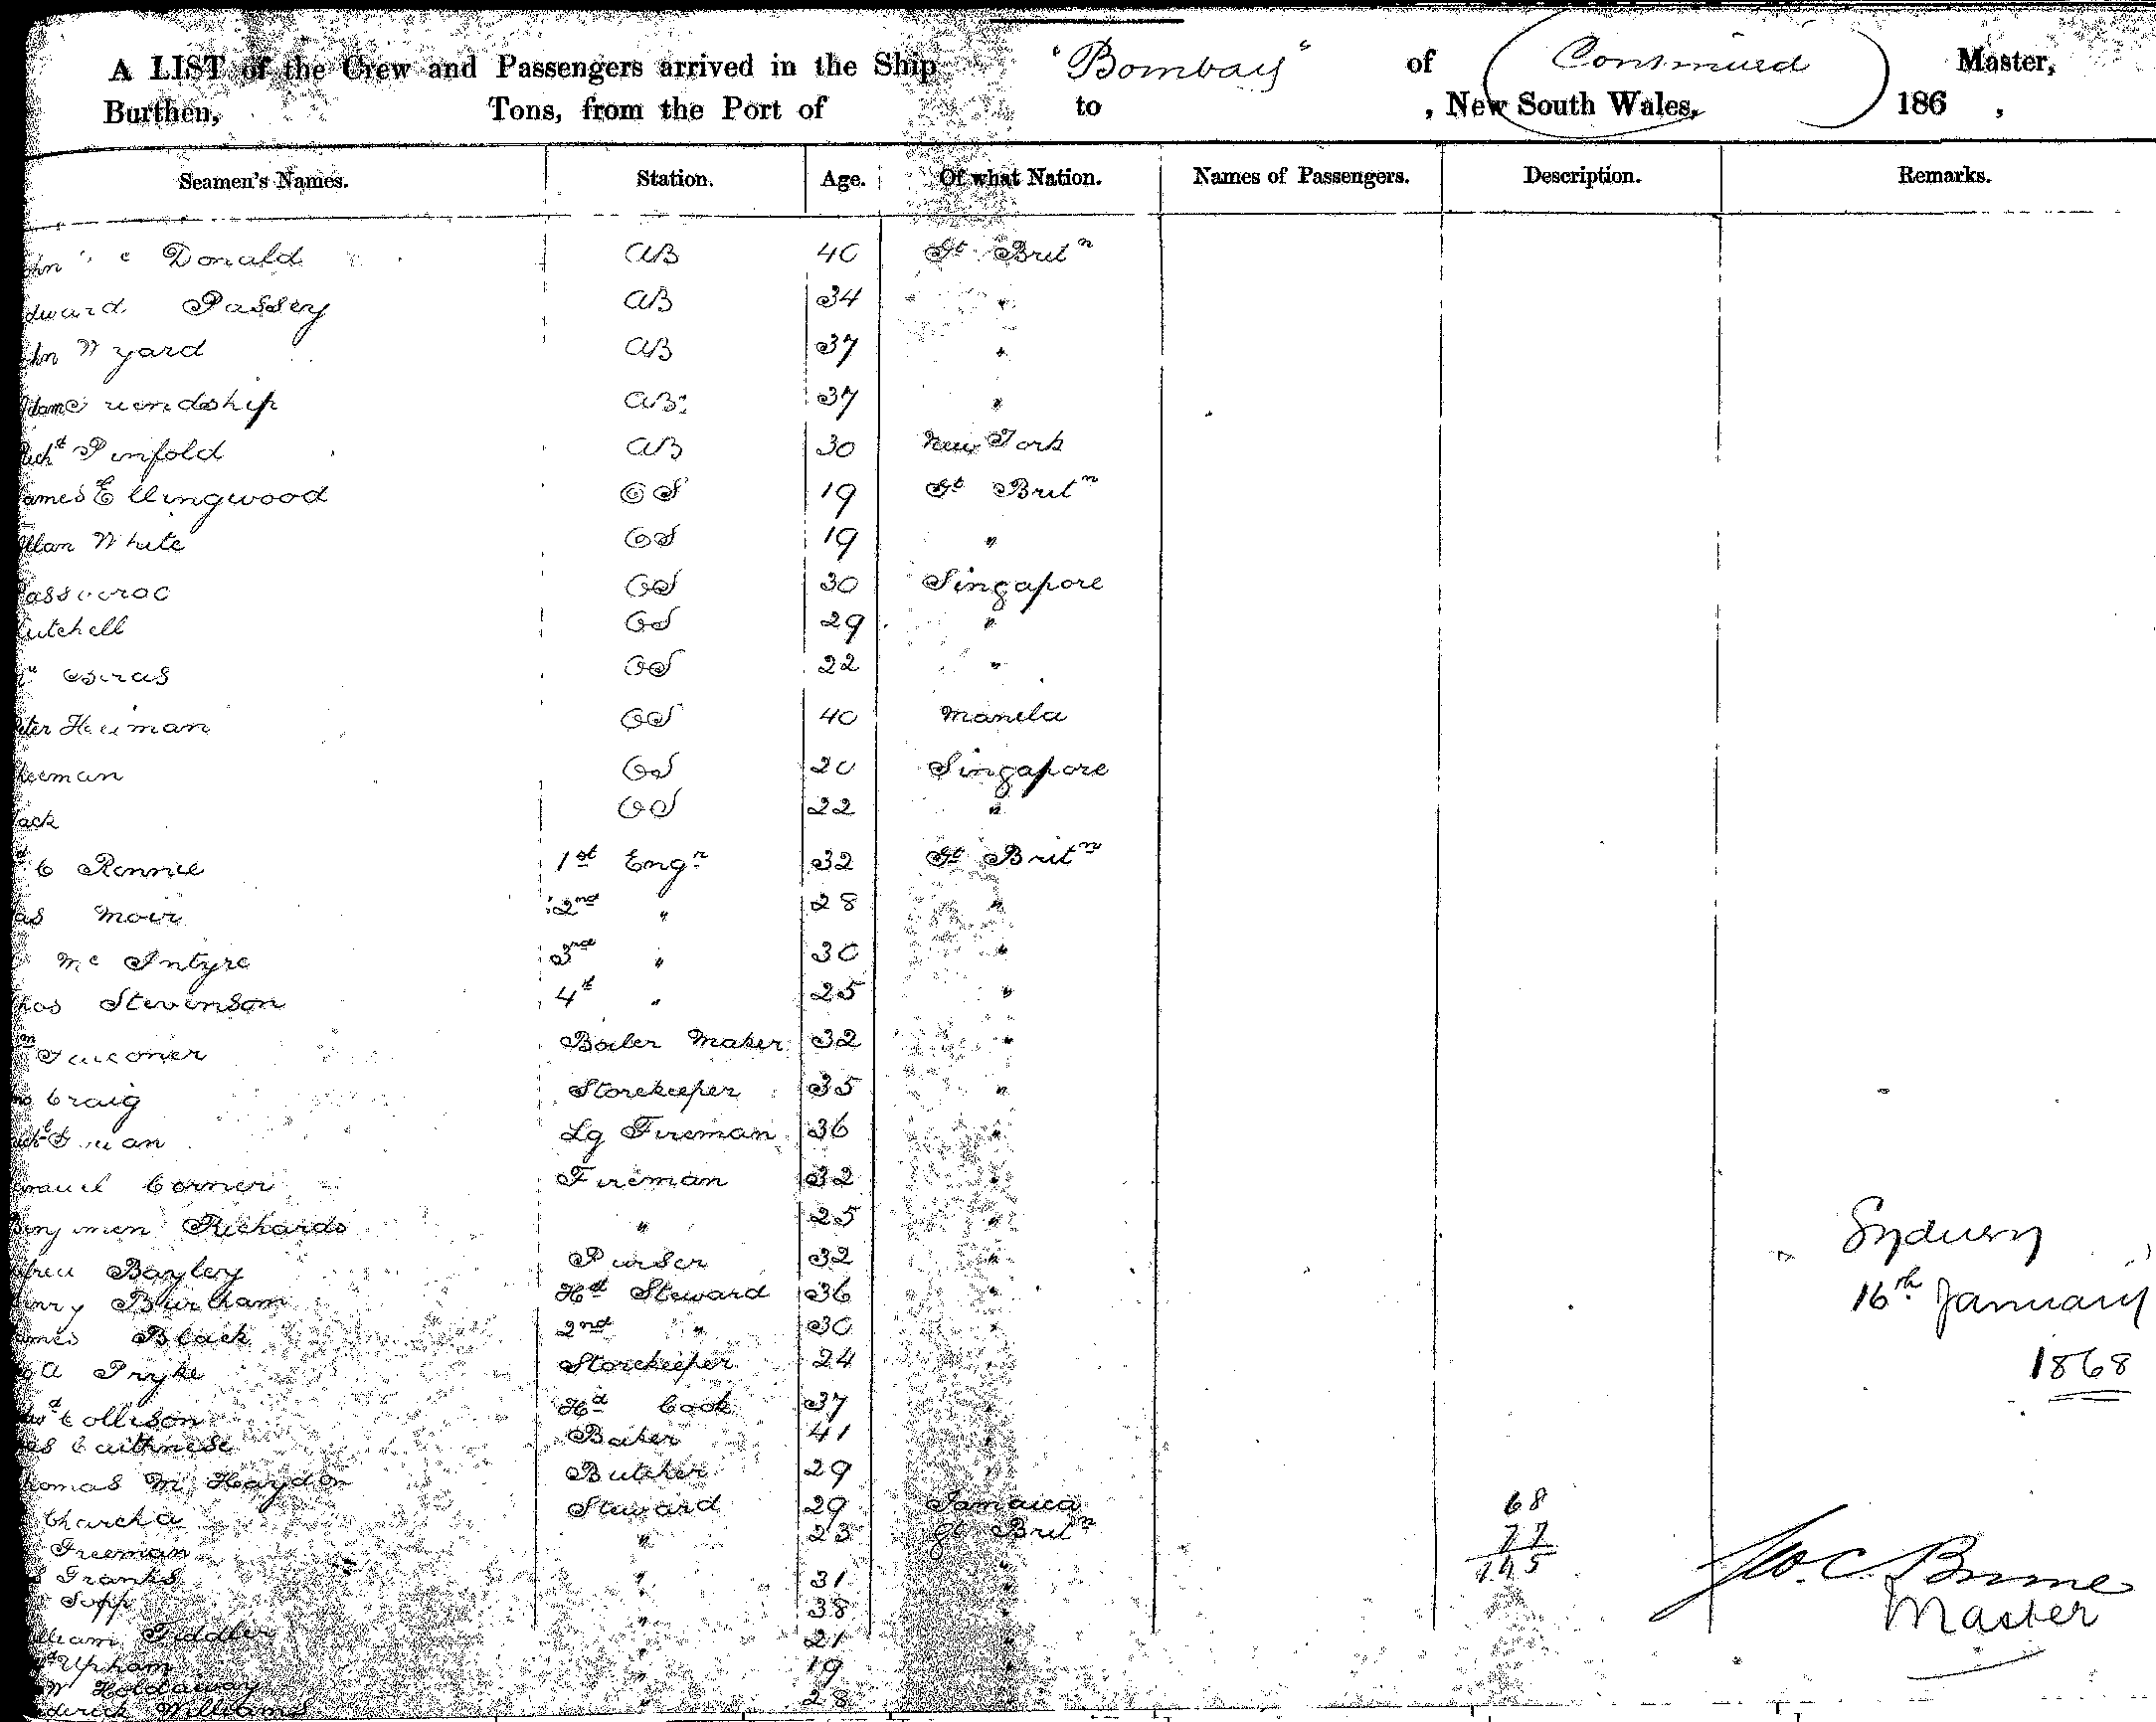 A LIST of the Crew and Passengers arrived in the Ship "Bombay" of Continued Master,
Burthen, Tons, from the Port of to , New South Wales, 186 ,
Seamen's Names. Station. Age. Of what Nation. Names of Passengers. Description. Remarks.
Donald AB 40 Gt Britn
Passey AB 34 "
Wyard AB 37 "
AB 37 "
Pinfold AB 30 New York
Ellingwood OS 19 Gt Britn
White OS 19 "
OS 30 Singapore
OS 29 "
OS 22 "
OS 40 Manila
OS 20 Singapore
OS 22 "
C Rennie 1st Engr 32 Gt Britn
Moir 2nd " 28 "
Mc Intyre 3rd " 30 "
Stevenson 4th " 25 "
Boiler Maker 32 "
Craig Storekeeper 35 "
Lg Fireman 36 "
Corner Fireman 32 "
Richards " 25 "
Bayley Purser 32 "
Burcham Hd Steward 36 "
Black 2nd " 30 "
A Pryke Storekeeper 24 "
Collison Hd Cook 37 "
Caithness Baker 41 "
Thomas M Haydon Butcher 29 "
Steward 29 Jamaica
Freeman " 23 Gt Britn
Franks " 31 "
Sopp " 38 "
William Fiddler " 21 "
Upham " 19 "
Holdaway " 28
Williams
Sydney
16th January
1868
68
77
145
Master